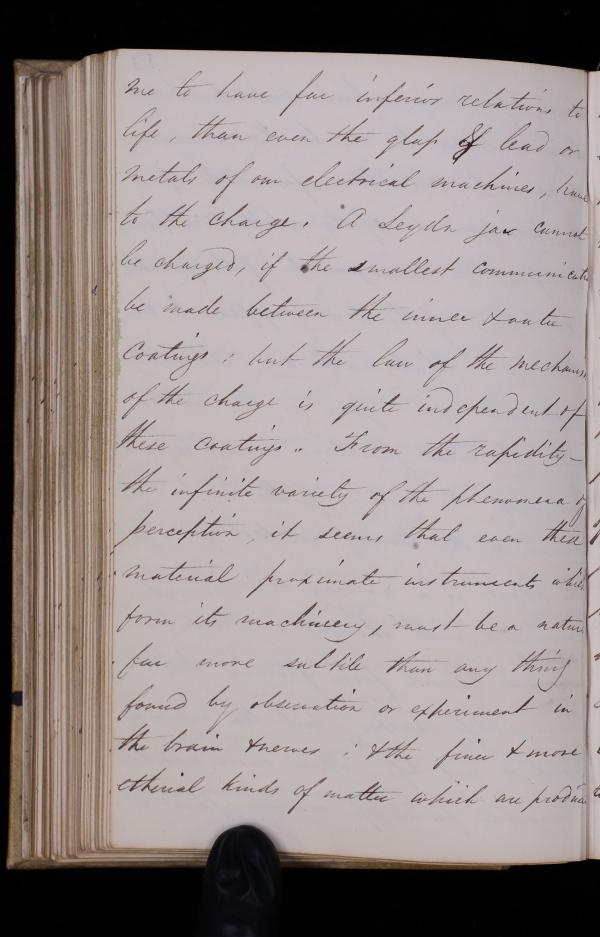 me to have far inferior relations to
life, than even the glass & lead or
metals of our electrical machines, have
to the charge. A Leyden jar cannot
be charged, if the smallest communicatn
be made between the inner & outer
coatings: but the law of the mechanism
of the charge is quite independent of
these coatings.. From the rapidity –
the infinite variety of the phenomena of
perception, it seems that even these
material proximate instruments which
form its machinery, must be a nature
far more subtile than any thing
found by observation or experiment in
the brain & nerves : & the finer & more
etherial kinds of matter which are produce